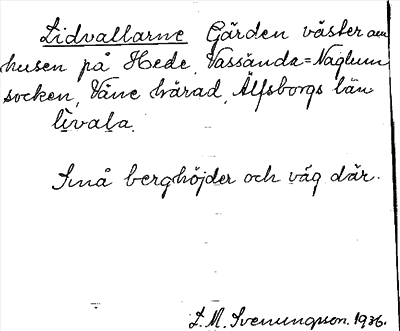 Lidvallarne Gärden väster om
husen på Hede, Vassända=Naglum
socken, Väne härad, Älfsborgs län
lìvaḷa.
Små berghöjder och väg där.
L. M. Svenungsson. 1936.